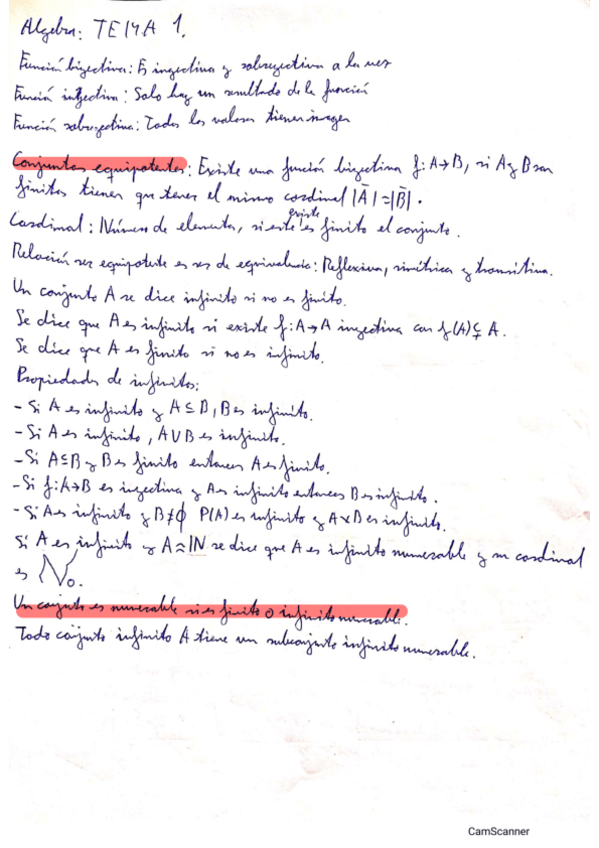 Algebra: TEMA 1.
Función biyectiva: Es inyectiva y sobreyectiva a la vez
Función inyectiva: Solo hay un resultado de la función
Función sobreyectiva: Todos los valores tienen imagen
Conjuntos equipotentes: Existe una función biyectiva f: A→B, si A y B son
finitos tienen que tener el mismo cardinal |Ā|=|B̄|.
Cardinal: Número de elementos, si este existe es finito el conjunto.
Relación ser equipotente es ser de equivalencia: Reflexiva, simétrica y transitiva.
Un conjunto A se dice infinito si no es finito.
Se dice que A es infinito si existe f: A→A inyectiva con f(A)⊊A.
Se dice que A es finito si no es infinito.
Propiedades de infinitos:
- Si A es infinito y A⊆B, B es infinito.
- Si A es infinito, A∪B es infinito.
- Si A⊆B y B es finito entonces A es finito.
- Si f: A→B es inyectiva y A es infinito entonces B es infinito.
- Si A es infinito y B≠∅ P(A) es infinito y A×B es infinito.
Si A es infinito y A≈ℕ se dice que A es infinito numerable y su cardinal
es ℵ₀.
Un conjunto es numerable si es finito o infinito numerable.
Todo conjunto infinito A tiene un subconjunto infinito numerable.
CamScanner